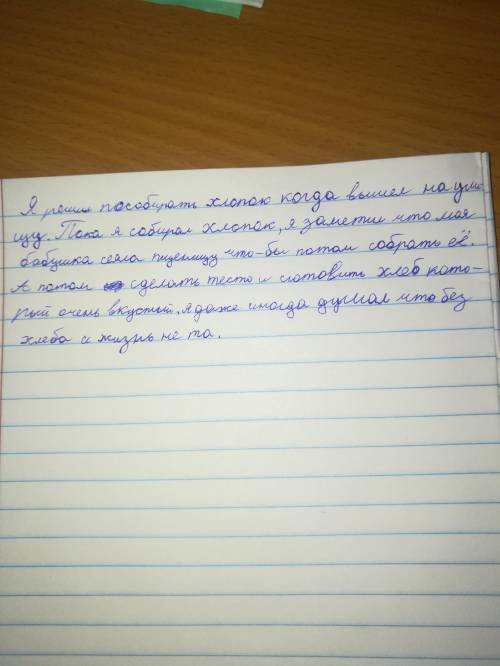 Я решил пособирать хлопок когда вышел на ули-
цу. Пока я собирал хлопок, я заметил что моя
бабушка сеяла пшеницу что-бы потом собрать её.
А потом сделать тесто и готовить хлеб кото-
рый очень вкустый. я даже иногда думал что без
хлеба и жизнь не та.